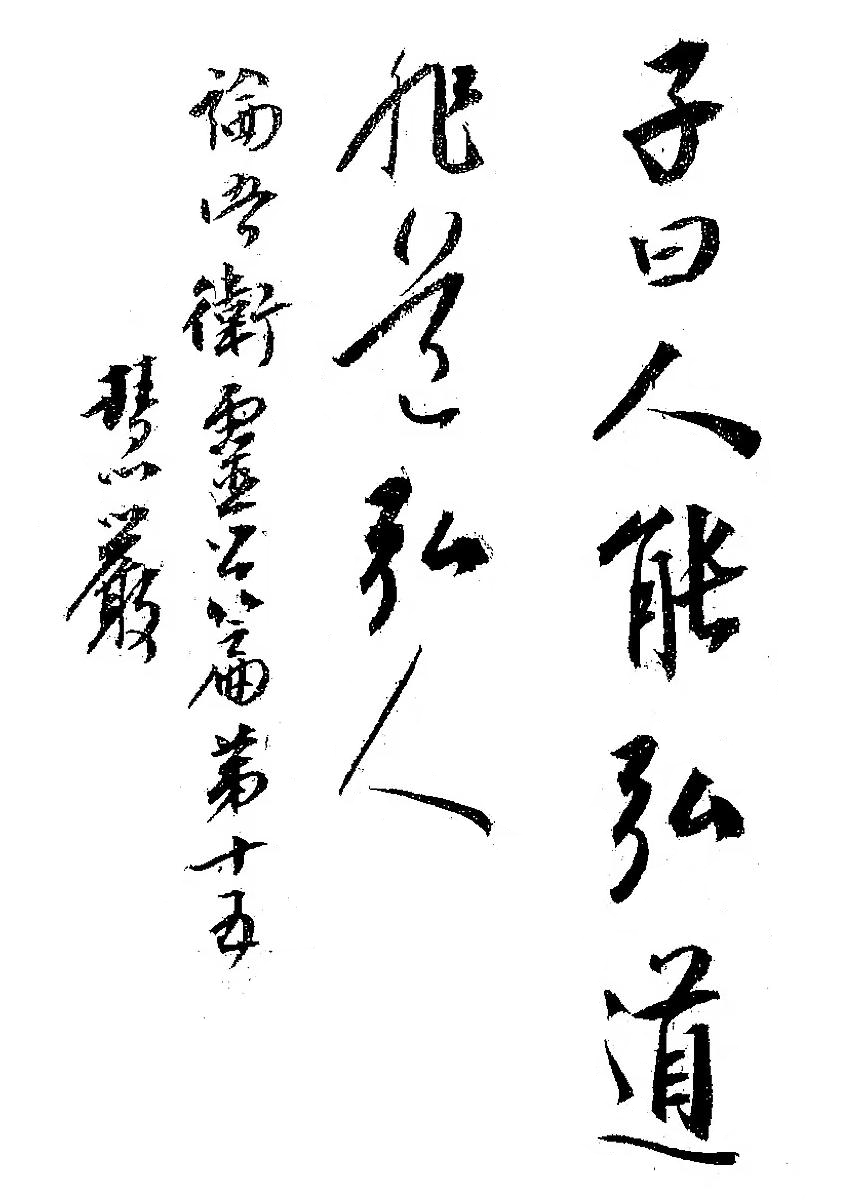 子曰人能弘道
非道弘人
論語衛靈公篇第十五
慧嚴